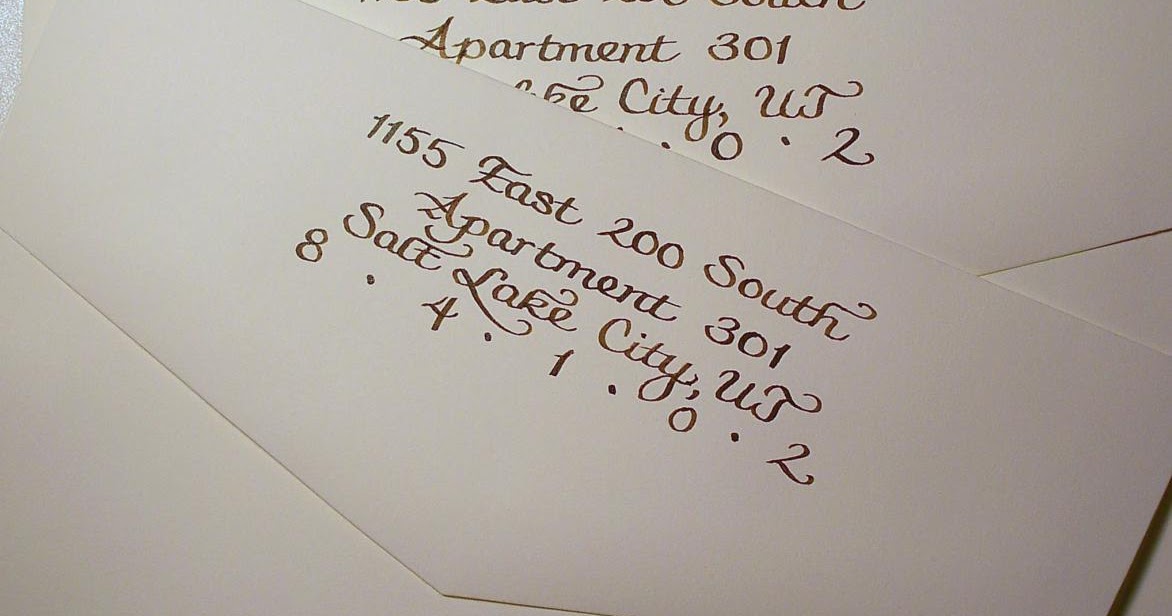 South
Apartment 301
Lake City, UT
. . 0 . 2
1155 East 200 South
Apartment 301
Salt Lake City, UT
8 . 4 . 1 . 0 . 2